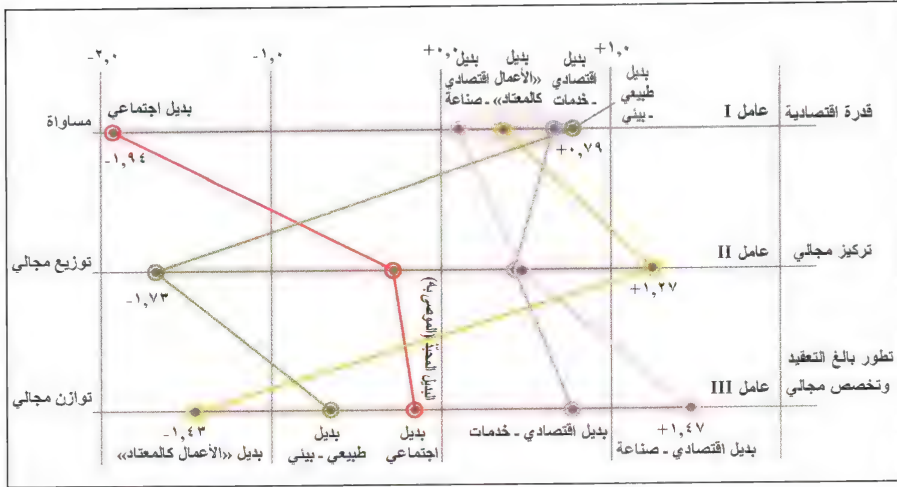 -٢,٠
-١,٠
+٠,٠
+١,٠
بديل اقتصادي - صناعة
بديل «الأعمال كالمعتاد»
بديل اقتصادي - خدمات
بديل طبيعي - بيئي
مساواة
بديل اجتماعي
-١,٩٤
+٠,٧٩
عامل I
قدرة اقتصادية
توزيع مجالي
-١,٧٣
البديل المحبّذ (الموصى به)
+١,٢٧
عامل II
تركيز مجالي
توازن مجالي
عامل III
تطور بالغ التعقيد
وتخصص مجالي
-١,٤٣
+١,٤٧
بديل «الأعمال كالمعتاد»
بديل
طبيعي - بيئي
بديل
اجتماعي
بديل اقتصادي - خدمات
بديل اقتصادي - صناعة